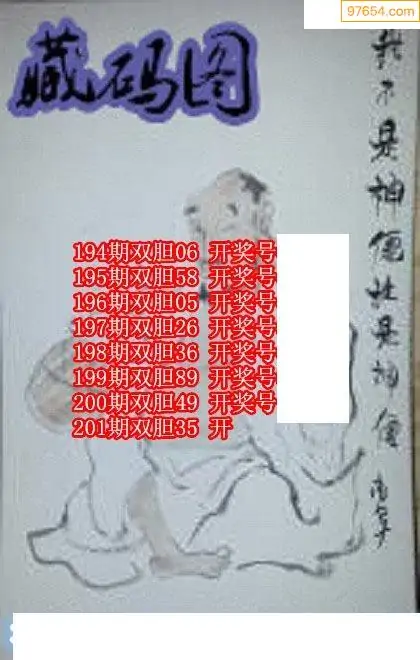 97654.com
藏码图
194期双胆06 开奖号
195期双胆58 开奖号
196期双胆05 开奖号
197期双胆26 开奖号
198期双胆36 开奖号
199期双胆89 开奖号
200期双胆49 开奖号
201期双胆35 开
不是神是神